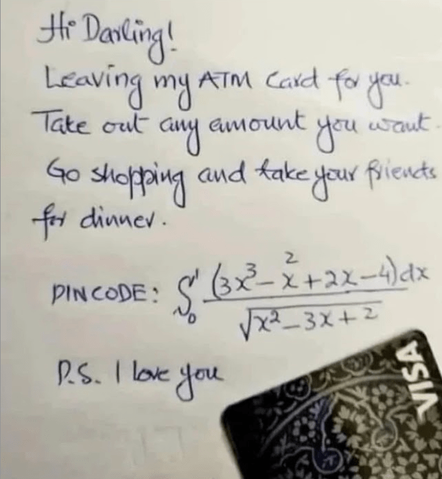 Hi Darling!
Leaving my ATM Card for you.
Take out any amount you want.
Go shopping and take your friends
for dinner.
PINCODE: ∫₀¹ (3x³-x²+2x-4)dx
√x²-3x+2
P.S. I love you
VISA